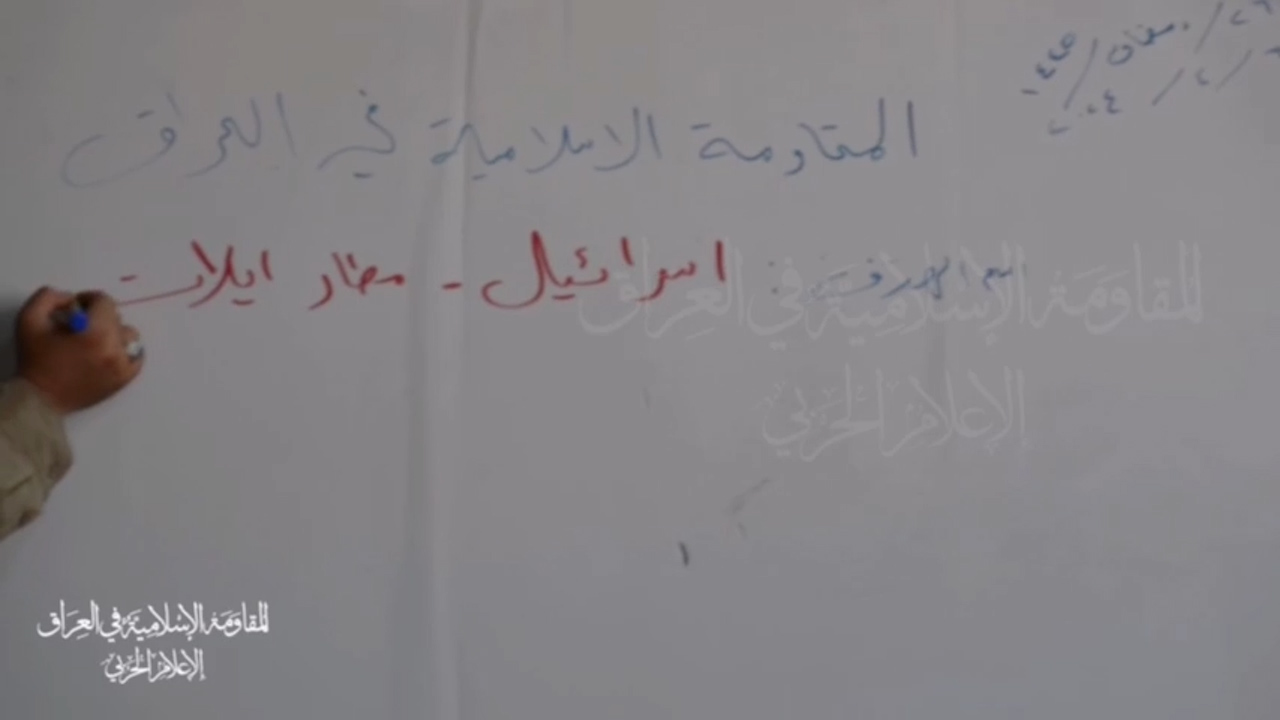 رمضان / ١٤٤٥
المقاومة الاسلامية في العراق
اسم الهدف : اسرائيل - مطار ايلات
المقاومة الإسلامية في العراق
الإعلام الحربي
المقاومة الإسلامية في العراق
الإعلام الحربي